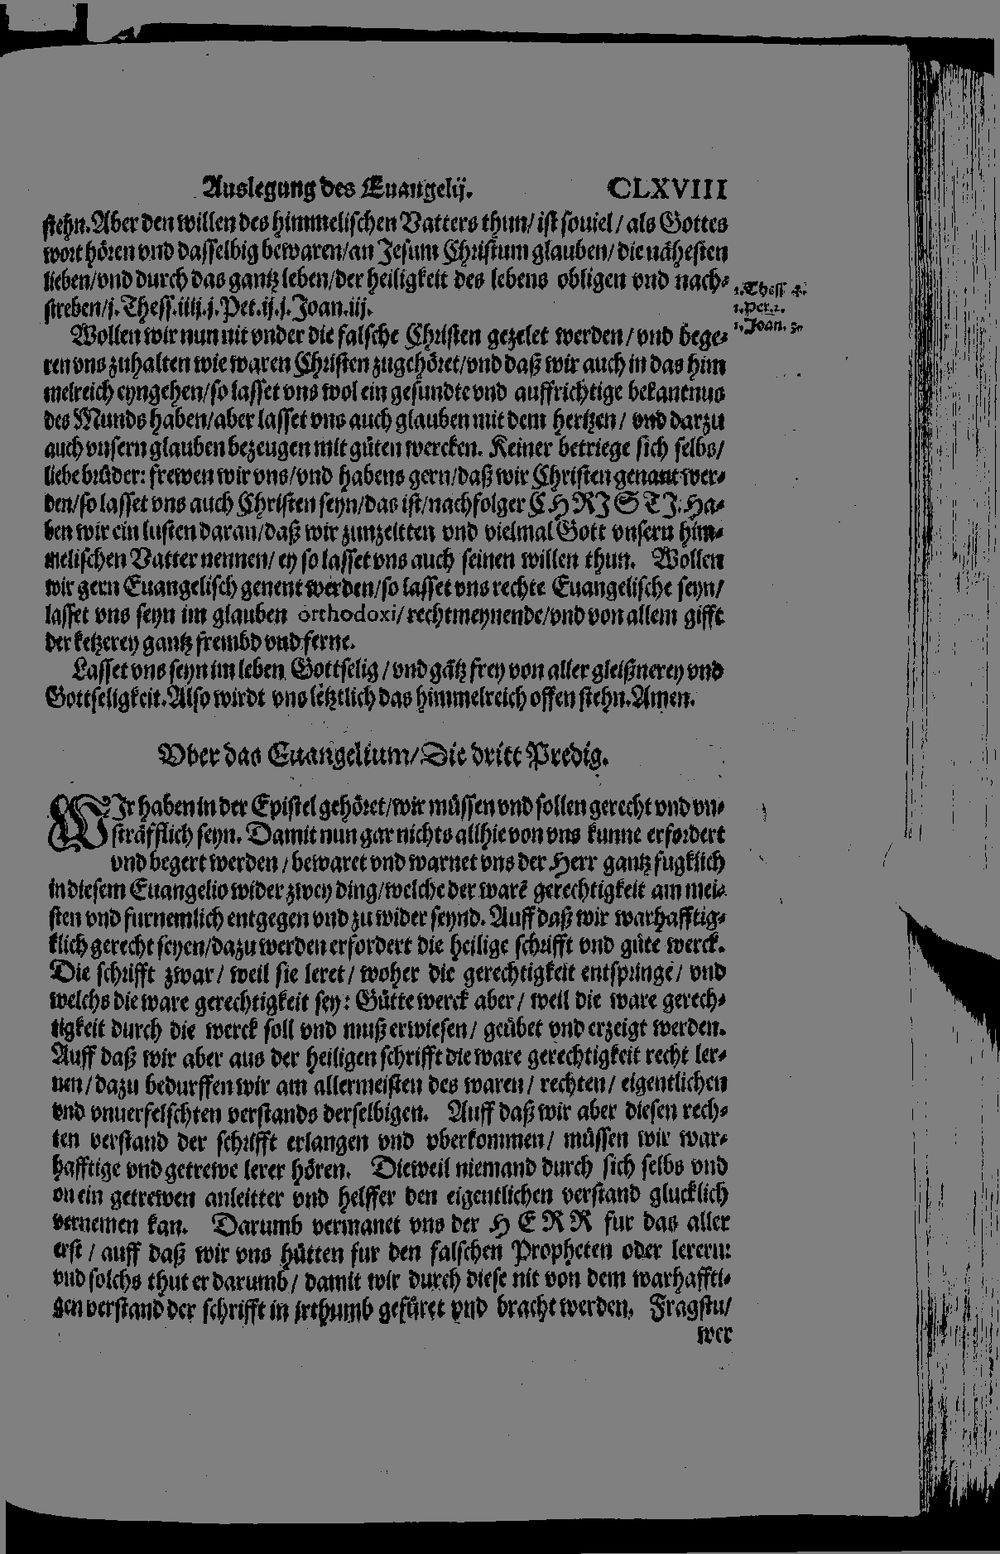 Auslegung des Euangelij. CLXVIII
stehn. Aber den willen des himmelischen Vatters thun/ ist souiel/ als Gottes
wort hören vnd dasselbig bewaren/ an Jesum Christum glauben/ die nähesten
lieben/ vnd durch das gantz leben/ der heiligkeit des lebens obligen vnd nach-
streben/ j. Thess. iiij. j. Pet. ij. j. Joan. iij.
1. Thess. 4.
1. Pet. 2.
1. Joan. 3.
Wollen wir nun nit vnder die falsche Christen gezelet werden/ vnd bege-
ren vns zuhalten wie waren Christen zugehöret/ vnd daß wir auch in das him
melreich eyngehen/ so lasset vns wol ein gesundte vnd auffrichtige bekantnus
des Munds haben/ aber lasset vns auch glauben mit dem hertzen/ vnd darzu
auch vnsern glauben bezeugen mit güten wercken. Keiner betriege sich selbs/
liebe brüder: frewen wir vns/ vnd habens gern/ daß wir Christen genant wer-
den/ so lasset vns auch Christen seyn/ das ist/ nachfolger CHRISTI. Ha-
ben wir ein lusten daran/ daß wir zunzeitten vnd vielmal Gott vnsern him-
melischen Vatter nennen/ ey so lasset vns auch seinen willen thun. Wollen
wir gern Euangelisch genent werden/ so lasset vns rechte Euangelische seyn/
lasset vns seyn im glauben orthodoxi/ rechtmeynende/ vnd von allem gifft
der ketzerey gantz frembd vnd ferne.
Lasset vns seyn im leben Gottselig/ vnd gātz frey von aller gleißnerey vnd
Gottseligkeit. Also wirdt vns letztlich das himmelreich offen stehn. Amen.
Vber das Euangelium/ Die dritt Predig.
WIr haben in der Epistel gehöret/ wir müssen vnd sollen gerecht vnd vn-
sträfflich seyn. Damit nun gar nichts allhie von vns kunne erfordert
vnd begert werden/ bewaret vnd warnet vns der Herr gantz fugklich
in diesem Euangelio wider zwey ding/ welche der warē gerechtigkeit am mei-
sten vnd furnemlich entgegen vnd zu wider seynd. Auff daß wir warhafftig-
klich gerecht seyen/ dazu werden erfordert die heilige schrifft vnd güte werck.
Die schrifft zwar/ weil sie leret/ woher die gerechtigkeit entspringe/ vnd
welchs die ware gerechtigkeit sey: Gütte werck aber/ weil die ware gerech-
tigkeit durch die werck soll vnd muß erwiesen/ geübet vnd erzeigt werden.
Auff daß wir aber aus der heiligen schrifft die ware gerechtigkeit recht ler-
nen/ dazu bedurffen wir am allermeisten des waren/ rechten/ eigentlichen
vnd vnuerfelschten verstands derselbigen. Auff daß wir aber diesen rech-
ten verstand der schrifft erlangen vnd vberkommen/ müssen wir war-
hafftige vnd getrewe lerer hören. Dieweil niemand durch sich selbs vnd
on ein getrewen anleitter vnd helffer den eigentlichen verstand glucklich
vernemen kan. Darumb vermanet vns der HERR fur das aller
erst/ auff daß wir vns hütten fur den falschen Propheten oder lerern:
vnd solchs thut er darumb/ damit wir durch diese nit von dem warhaffti-
gen verstand der schrifft in jrthumb gefüret vnd bracht werden. Fragstu/
wer